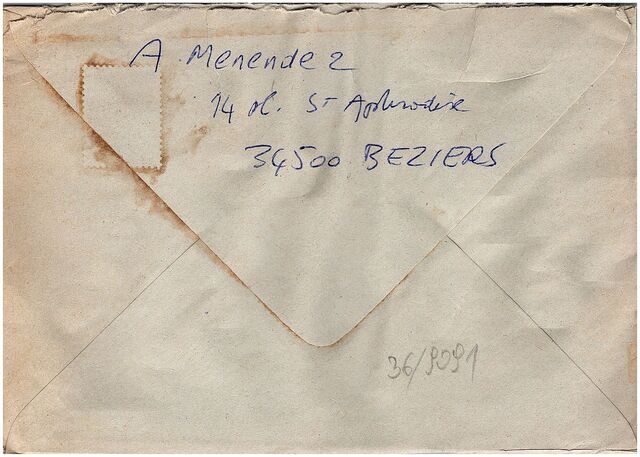 A. Menendez
14 pl. St Aphrodise
34500 BEZIERS
36/9091